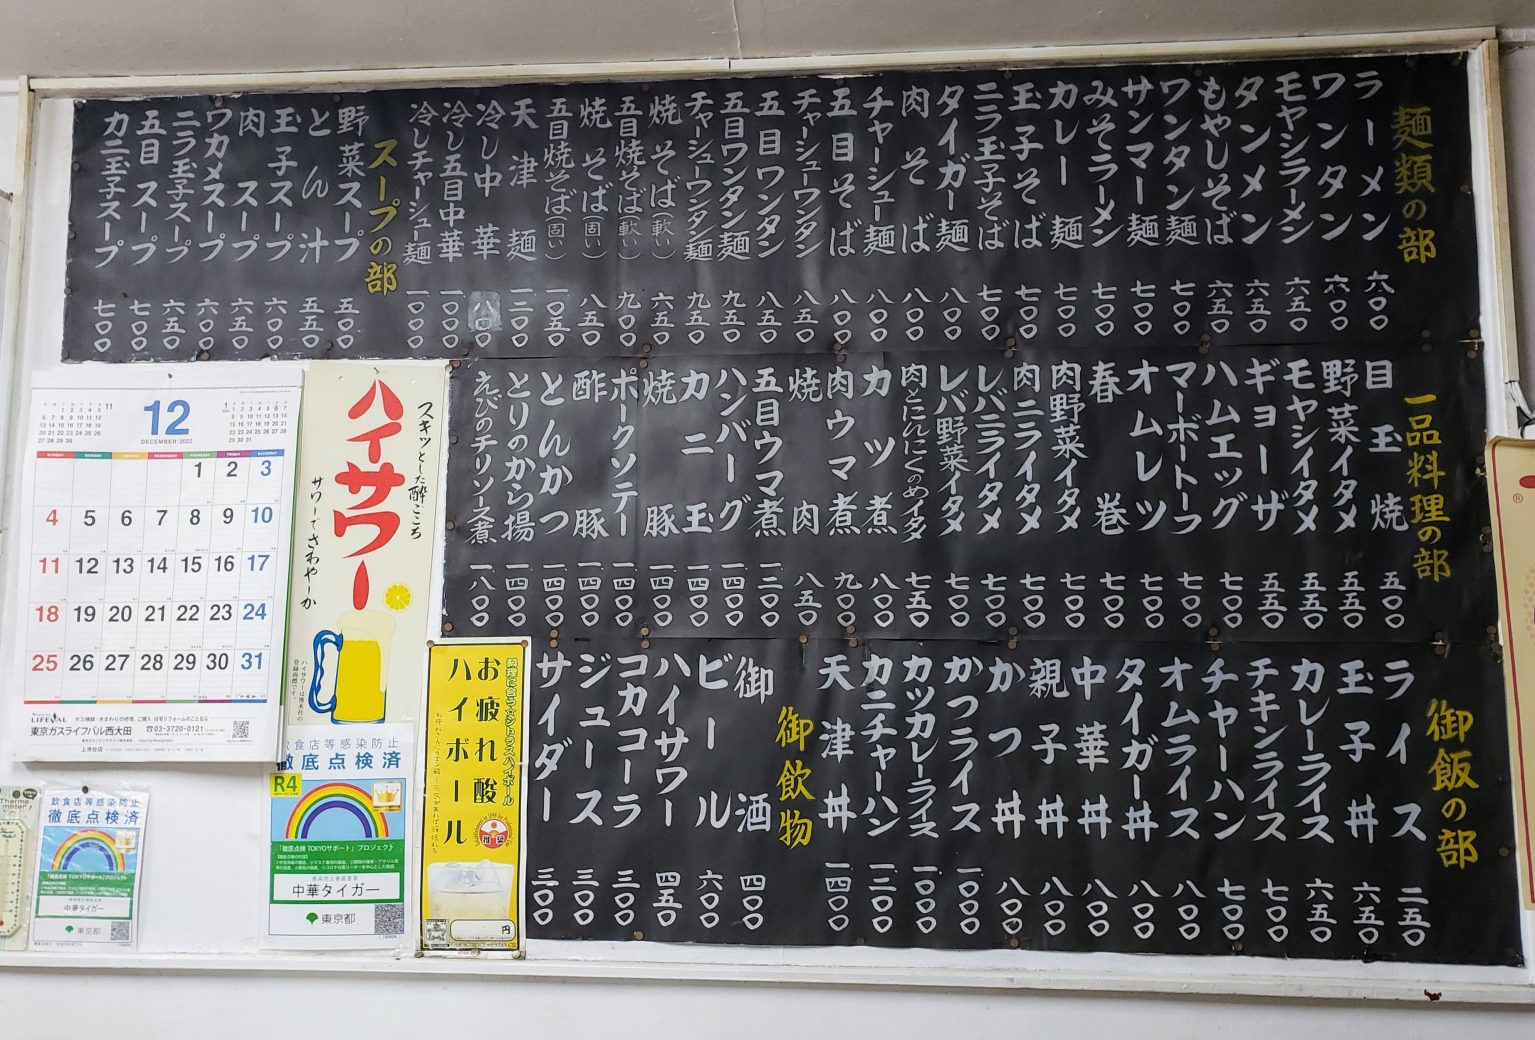 麺類の部
ラーメン 六〇〇
ワンタン 六〇〇
モヤシラーメン 六五〇
タンメン 六五〇
もやしそば 六五〇
ワンタン麺 七〇〇
サンマー麺 七〇〇
みそラーメン 七〇〇
カレー麺 七〇〇
玉子そば 七〇〇
ニラ玉子そば 七〇〇
タイガー麺 八〇〇
肉そば 八〇〇
チャーシュー麺 八〇〇
五目そば 八〇〇
チャーシューワンタン 八五〇
五目ワンタン 八五〇
五目ワンタン麺 九五〇
チャーシューワンタン麺 九五〇
焼そば(軟い) 六五〇
五目焼そば(軟い) 九〇〇
焼そば(固い) 八五〇
五目焼そば(固い) 一〇五〇
天津麺 一二〇〇
冷し中華 八〇〇
冷し五目中華 一〇〇〇
冷しチャーシュー麺 一〇〇〇
スープの部
野菜スープ 五〇〇
とん汁 五五〇
玉子スープ 六〇〇
肉スープ 六五〇
ワカメスープ 六〇〇
ニラ玉子スープ 六五〇
五目スープ 七〇〇
カニ玉子スープ 七〇〇
一品料理の部
目玉焼 五〇〇
野菜イタメ 五五〇
モヤシイタメ 五五〇
ギョーザ 五五〇
ハムエッグ 七〇〇
マーボートーフ 七〇〇
オムレツ 七〇〇
春巻 七〇〇
肉野菜イタメ 七〇〇
肉ニライタメ 七〇〇
レバニライタメ 七〇〇
レバ野菜イタメ 七〇〇
肉とにんにくのめイタメ 七五〇
カツ煮 八〇〇
肉ウマ煮 九〇〇
焼肉 八五〇
五目ウマ煮 一二〇〇
ハンバーグ 一四〇〇
カニ玉 一四〇〇
焼豚 一四〇〇
ポークソテー 一四〇〇
酢豚 一四〇〇
とんかつ 一四〇〇
とりのから揚 一四〇〇
えびのチリソース煮 一八〇〇
御飯の部
ライス 二五〇
玉子丼 六五〇
カレーライス 六五〇
チキンライス 七〇〇
チャーハン 七〇〇
オムライス 八〇〇
タイガー丼 八〇〇
中華丼 八〇〇
親子丼 八〇〇
かつ丼 八〇〇
かつライス 一〇〇〇
カツカレーライス 一〇〇〇
カニチャーハン 一二〇〇
天津丼 一四〇〇
御飲物
御酒 四〇〇
ビール 六〇〇
ハイサワー 四五〇
コカコーラ 三〇〇
ジュース 三〇〇
サイダー 三〇〇
12
DECEMBER・2022
11
1
SUNDAY MONDAY TUESDAY WEDNESDAY THURSDAY FRIDAY SATURDAY
1 2 3
4 5 6 7 8 9 10
11 12 13 14 15 16 17
18 19 20 21 22 23 24
25 26 27 28 29 30 31
LIFEVAL
ガス機器・水まわりの修理、ご購入 住宅リフォームのことなら
東京ガスライフバル西大田
☎03-3720-0121
上池台店
スキッとした酔ごころ
ハイサワー
サワーでさわやーか
ハイサワーは博水社の登録商標です。
飲食店等感染防止
徹底点検済
R4
「徹底点検 TOKYOサポート」プロジェクト
中華タイガー
東京都
料理に合う☆シトラスハイボール
お疲れ酸ハイボール
推奨
円
Thermo meter
飲食店等感染防止
徹底点検済
「徹底点検 TOKYOサポート」プロジェクト
中華タイガー
東京都